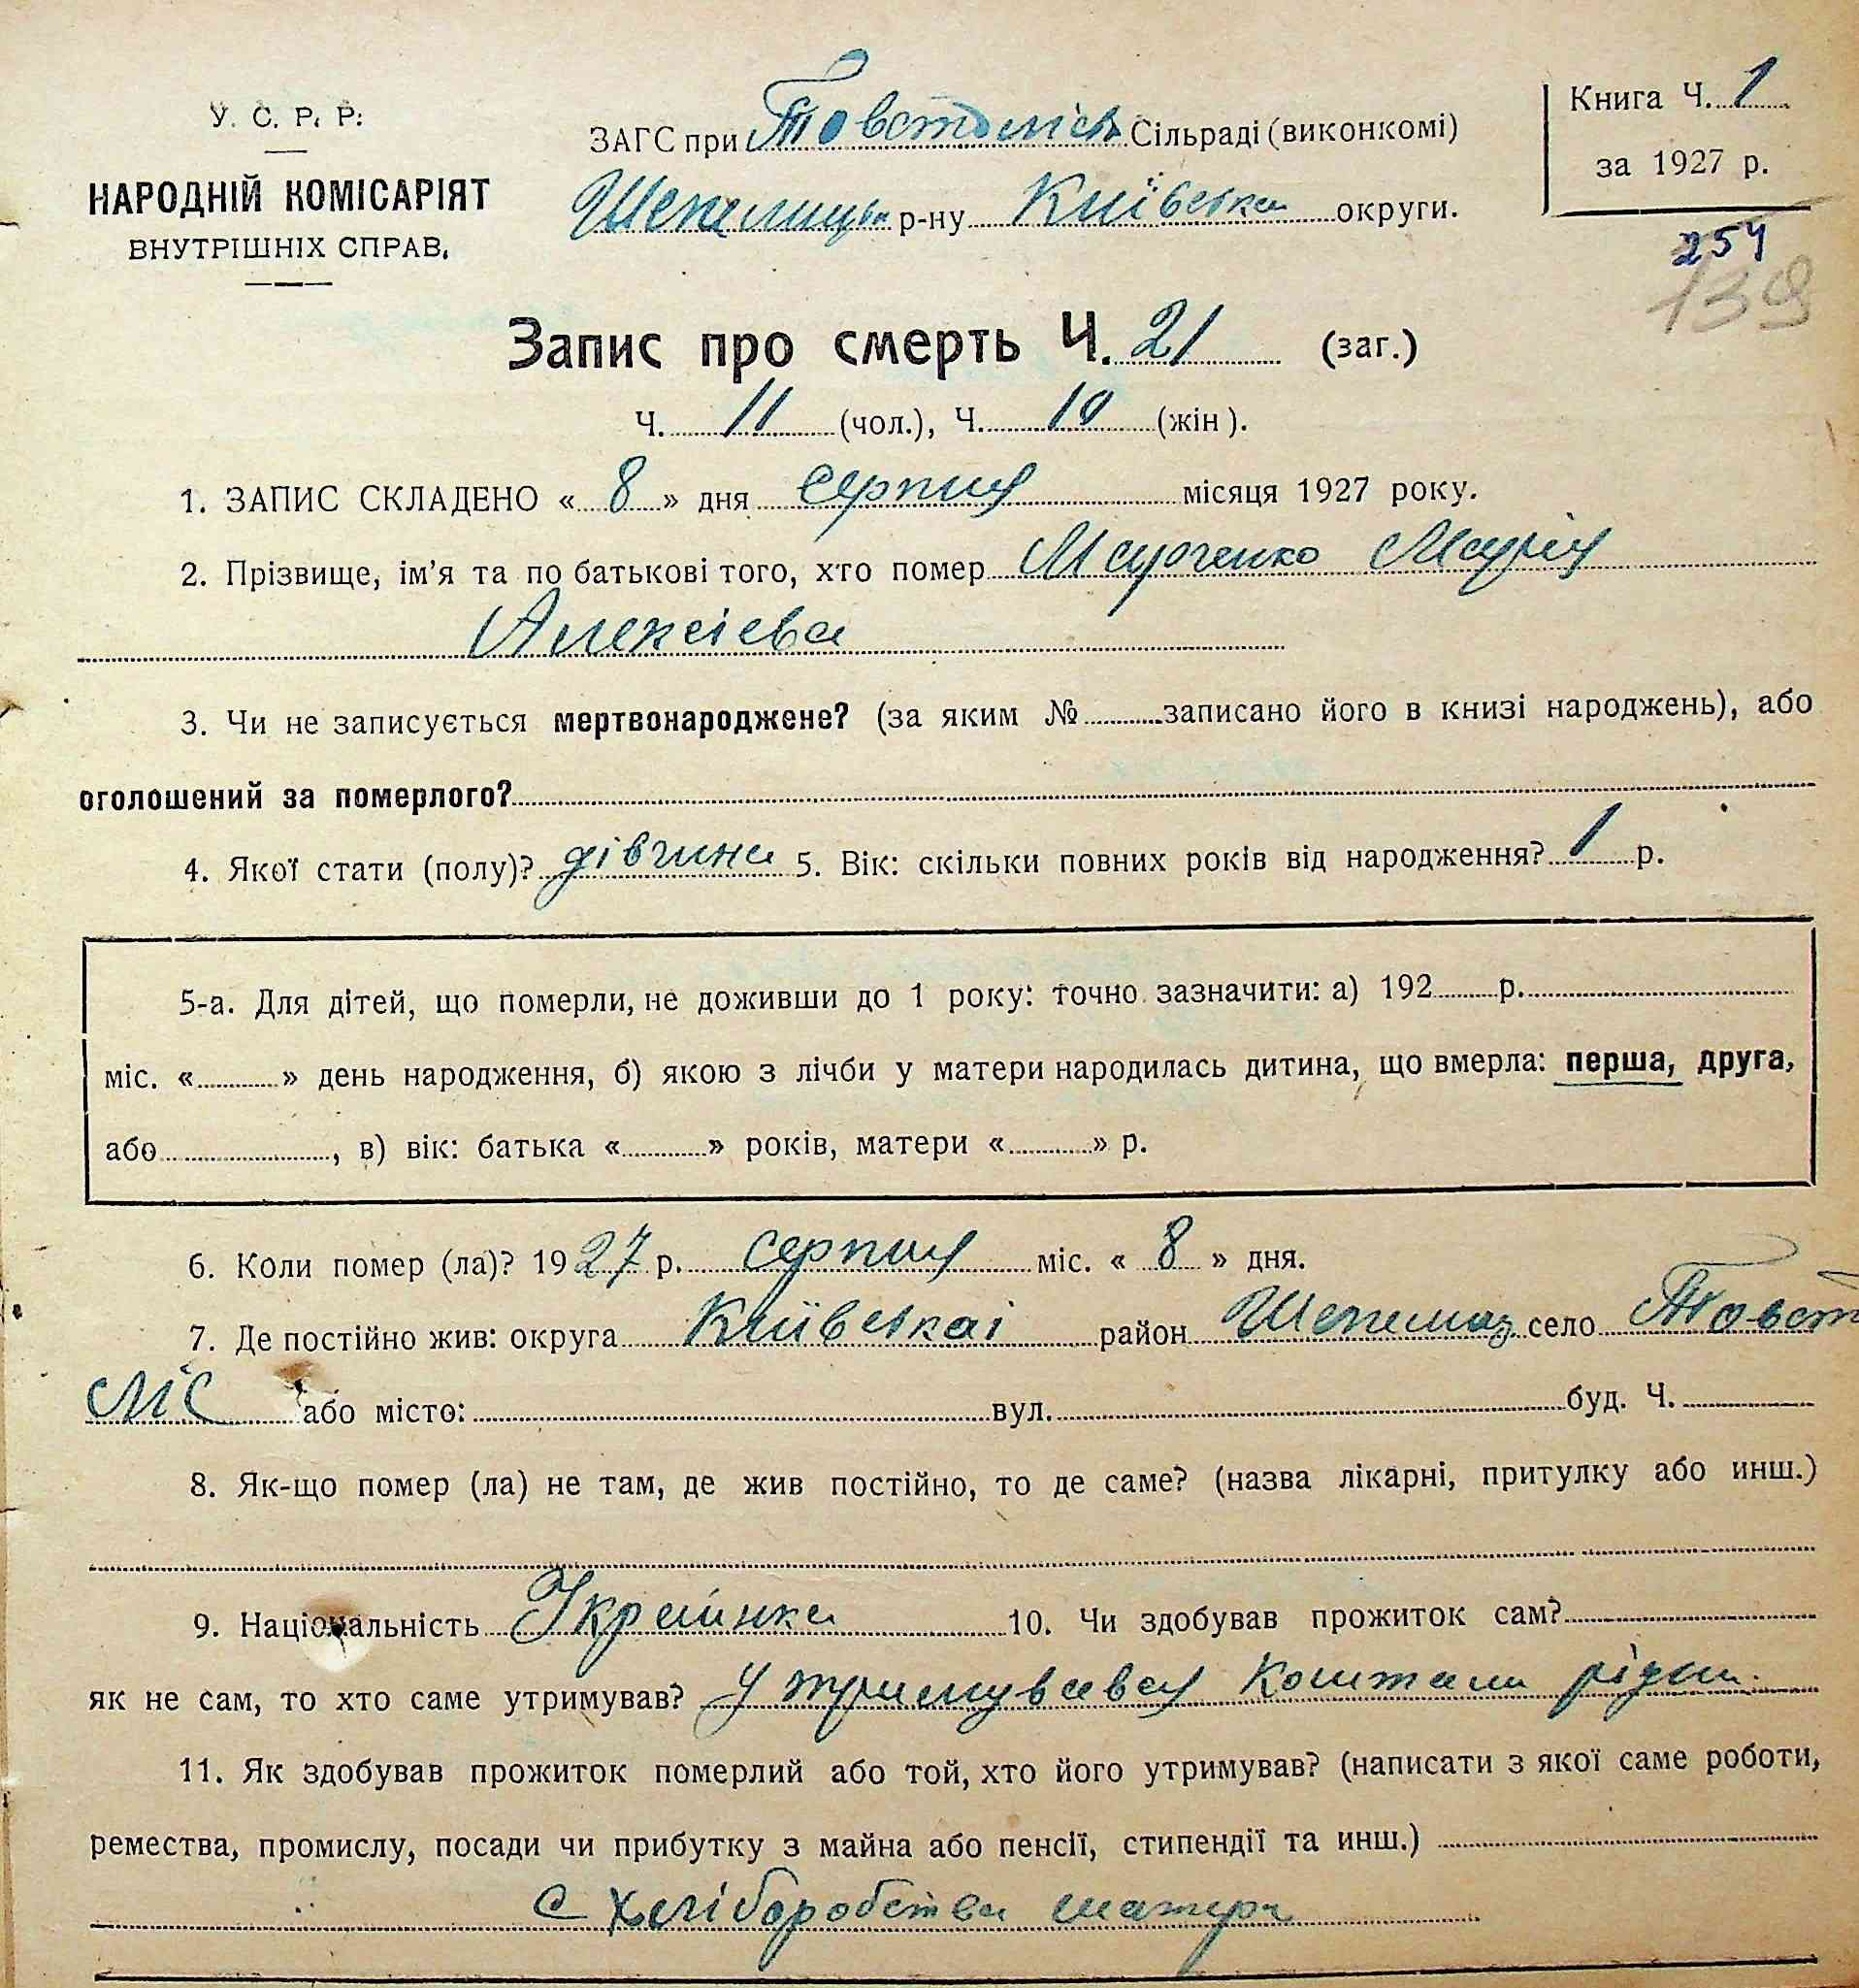 У. С. Р. Р.
НАРОДНІЙ КОМІСАРІЯТ
ВНУТРІШНІХ СПРАВ.
ЗАГС при Товстоліськ Сільраді (виконкомі)
Шепелицьк р-ну Київська округи.
Книга Ч. 1
за 1927 р.
254
139
Запис про смерть Ч. 21 (заг.)
Ч. 11 (чол.), Ч. 10 (жін).
1. ЗАПИС СКЛАДЕНО « 8 » дня серпня місяця 1927 року.
2. Прізвище, ім’я та по батькові того, хто помер Марченко Марія
Алексієва
3. Чи не записується мертвонароджене? (за яким № записано його в книзі народжень), або
оголошений за померлого?
4. Якої стати (полу)? дівчина 5. Вік: скільки повних років від народження? 1 р.
5-а. Для дітей, що померли, не доживши до 1 року: точно зазначити: а) 192 р.
міс. « » день народження, б) якою з лічби у матери народилась дитина, що вмерла: перша, друга,
або , в) вік: батька « » років, матери « » р.
6. Коли помер (ла)? 1927 р. серпня міс. « 8 » дня.
7. Де постійно жив: округа Київськаі район Шепелиц село Товст
ліс або місто: вул. буд. Ч.
8. Як-що помер (ла) не там, де жив постійно, то де саме? (назва лікарні, притулку або инш.)
9. Національність Украинка 10. Чи здобував прожиток сам?
як не сам, то хто саме утримував? Утримувався коштами рідни
11. Як здобував прожиток померлий або той, хто його утримував? (написати з якої саме роботи,
ремества, промислу, посади чи прибутку з майна або пенсії, стипендії та инш.)
С хліборобства матери